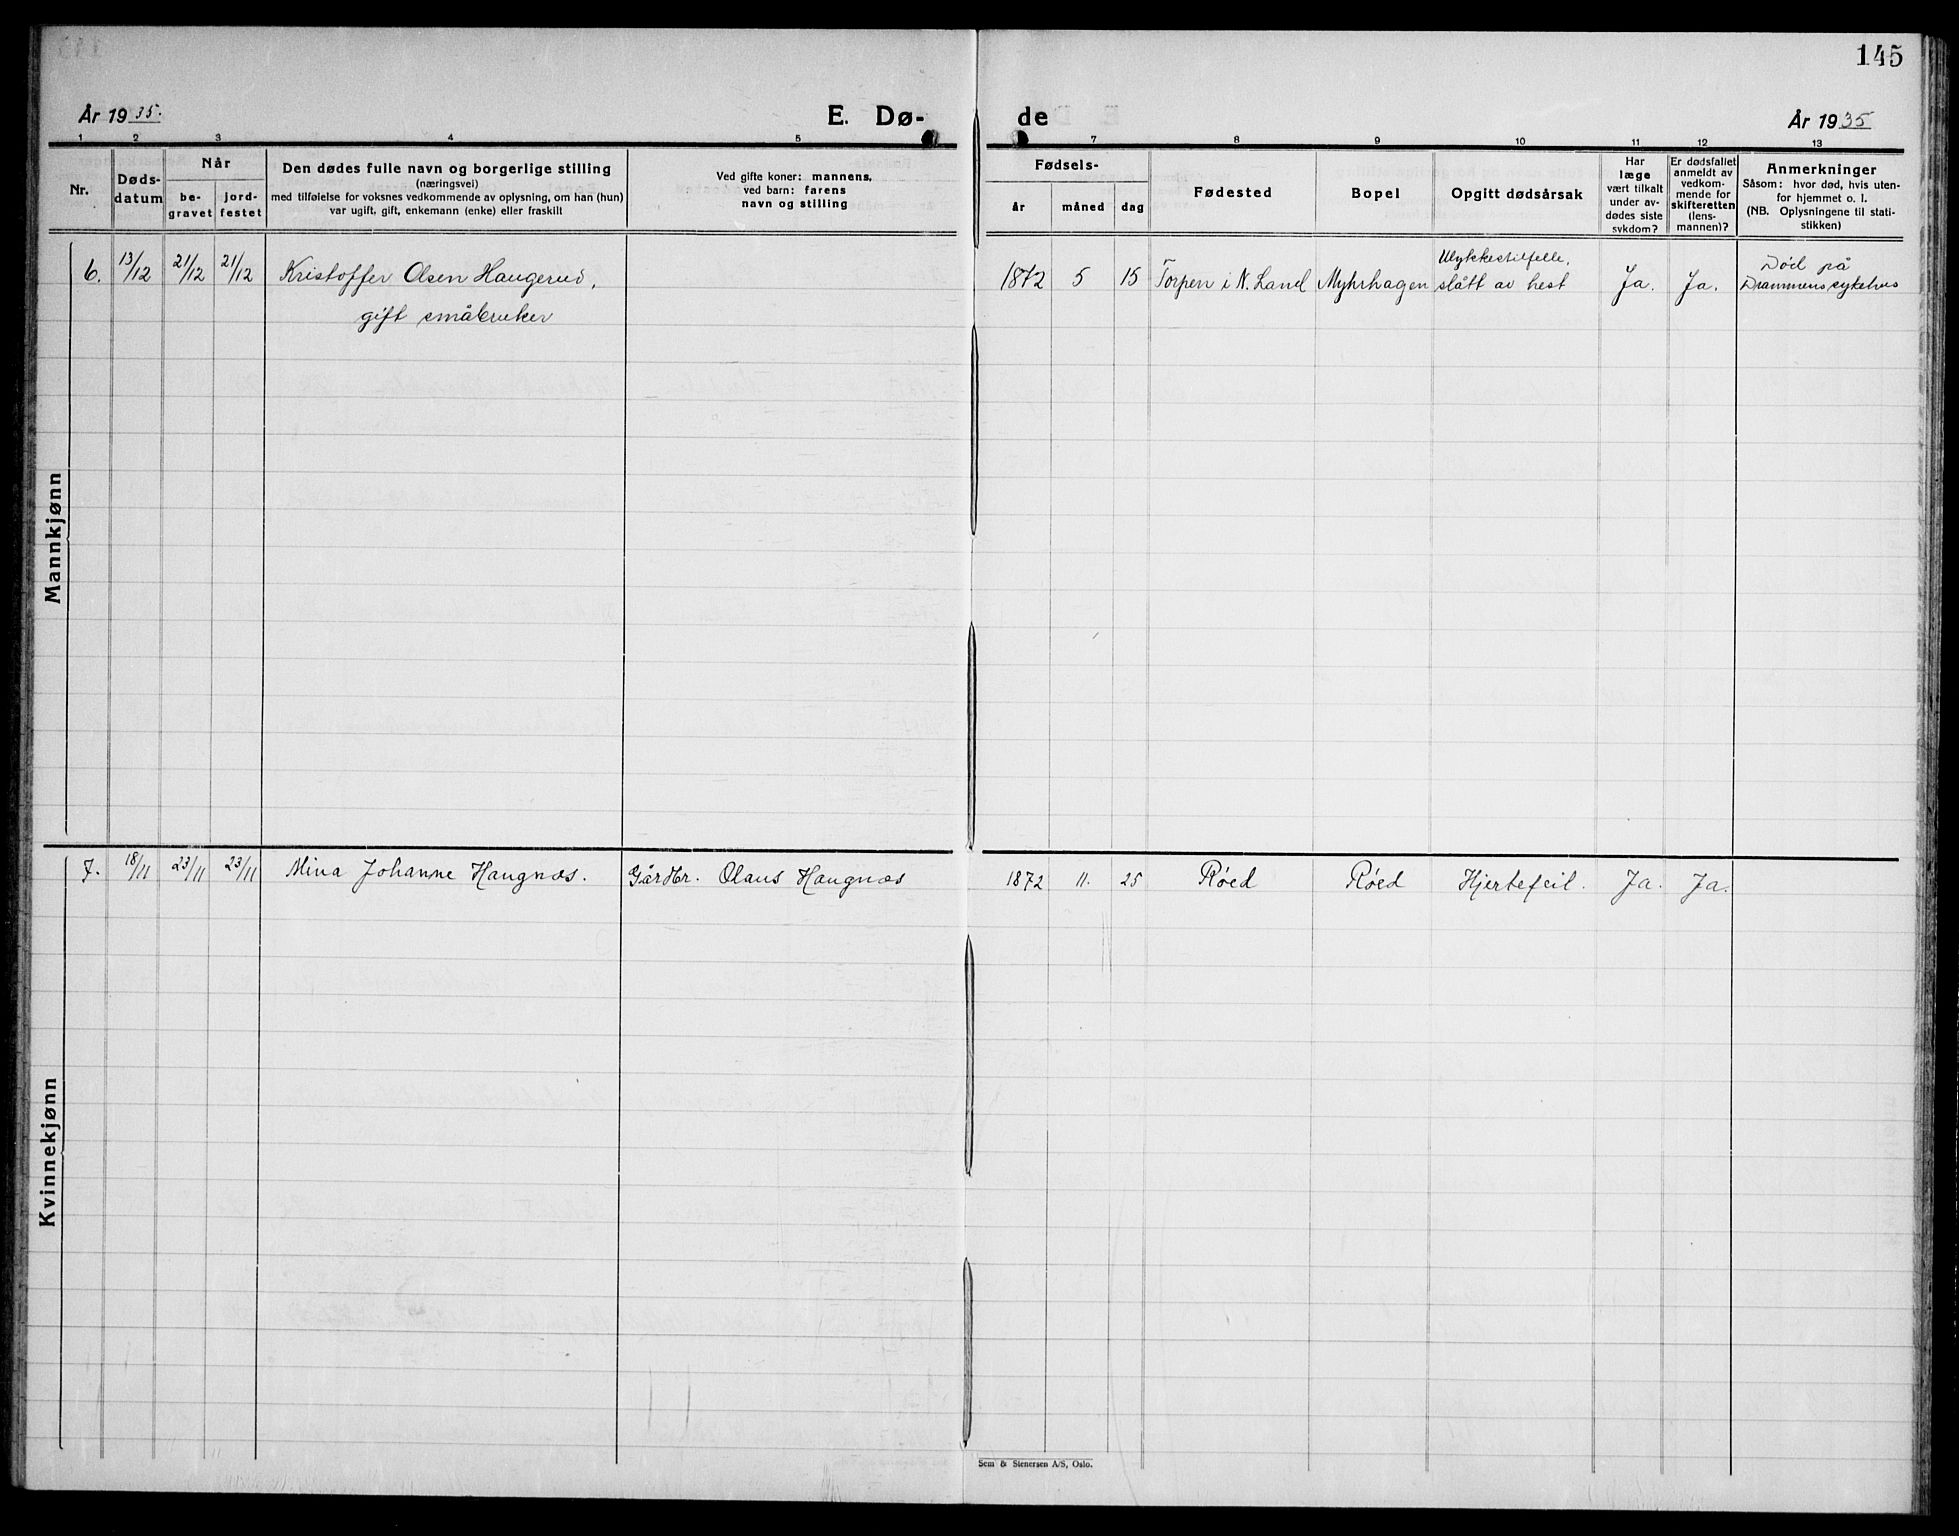 145
År 1935.
E. Dø-
de
År 1935
1 2 3 4 5 7 8 9 10 11 12 13
Nr.
Døds-
datum
Når
be-
gravet
jord-
festet
Den dødes fulle navn og borgerlige stilling
(næringsvei)
med tilføielse for voksnes vedkommende av oplysning, om han (hun)
var ugift, gift, enkemann (enke) eller fraskilt
Ved gifte koner: mannens,
ved barn: farens
navn og stilling
Fødsels-
år måned dag
Fødested
Bopel
Opgitt dødsårsak
Har
læge
vært tilkalt
under av-
dødes siste
sykdom?
Er dødsfallet
anmeldt av
vedkom-
mende for
skifteretten
(lens-
mannen)?
Anmerkninger
Såsom: hvor død, hvis uten-
for hjemmet o. l.
(NB. Oplysningene til stati-
stikken)
Mannkjønn
6. 13/12 21/12 21/12 Kristoffer Olsen Haugerud,
gift småbruker
1872 5 15 Torpen i N. Land Myhrhagen
Ulykkestilfelle,
slått av hest
Ja. Ja.
Død på
Drammens sykehus
Kvinnekjønn
7. 18/11 23/11 23/11 Mina Johanne Haugnæs. Gårdbr. Olaus Haugnæs 1872 11. 25 Røed Røed Hjertefeil. Ja. Ja.
Sem & Stenersen A/S, Oslo.